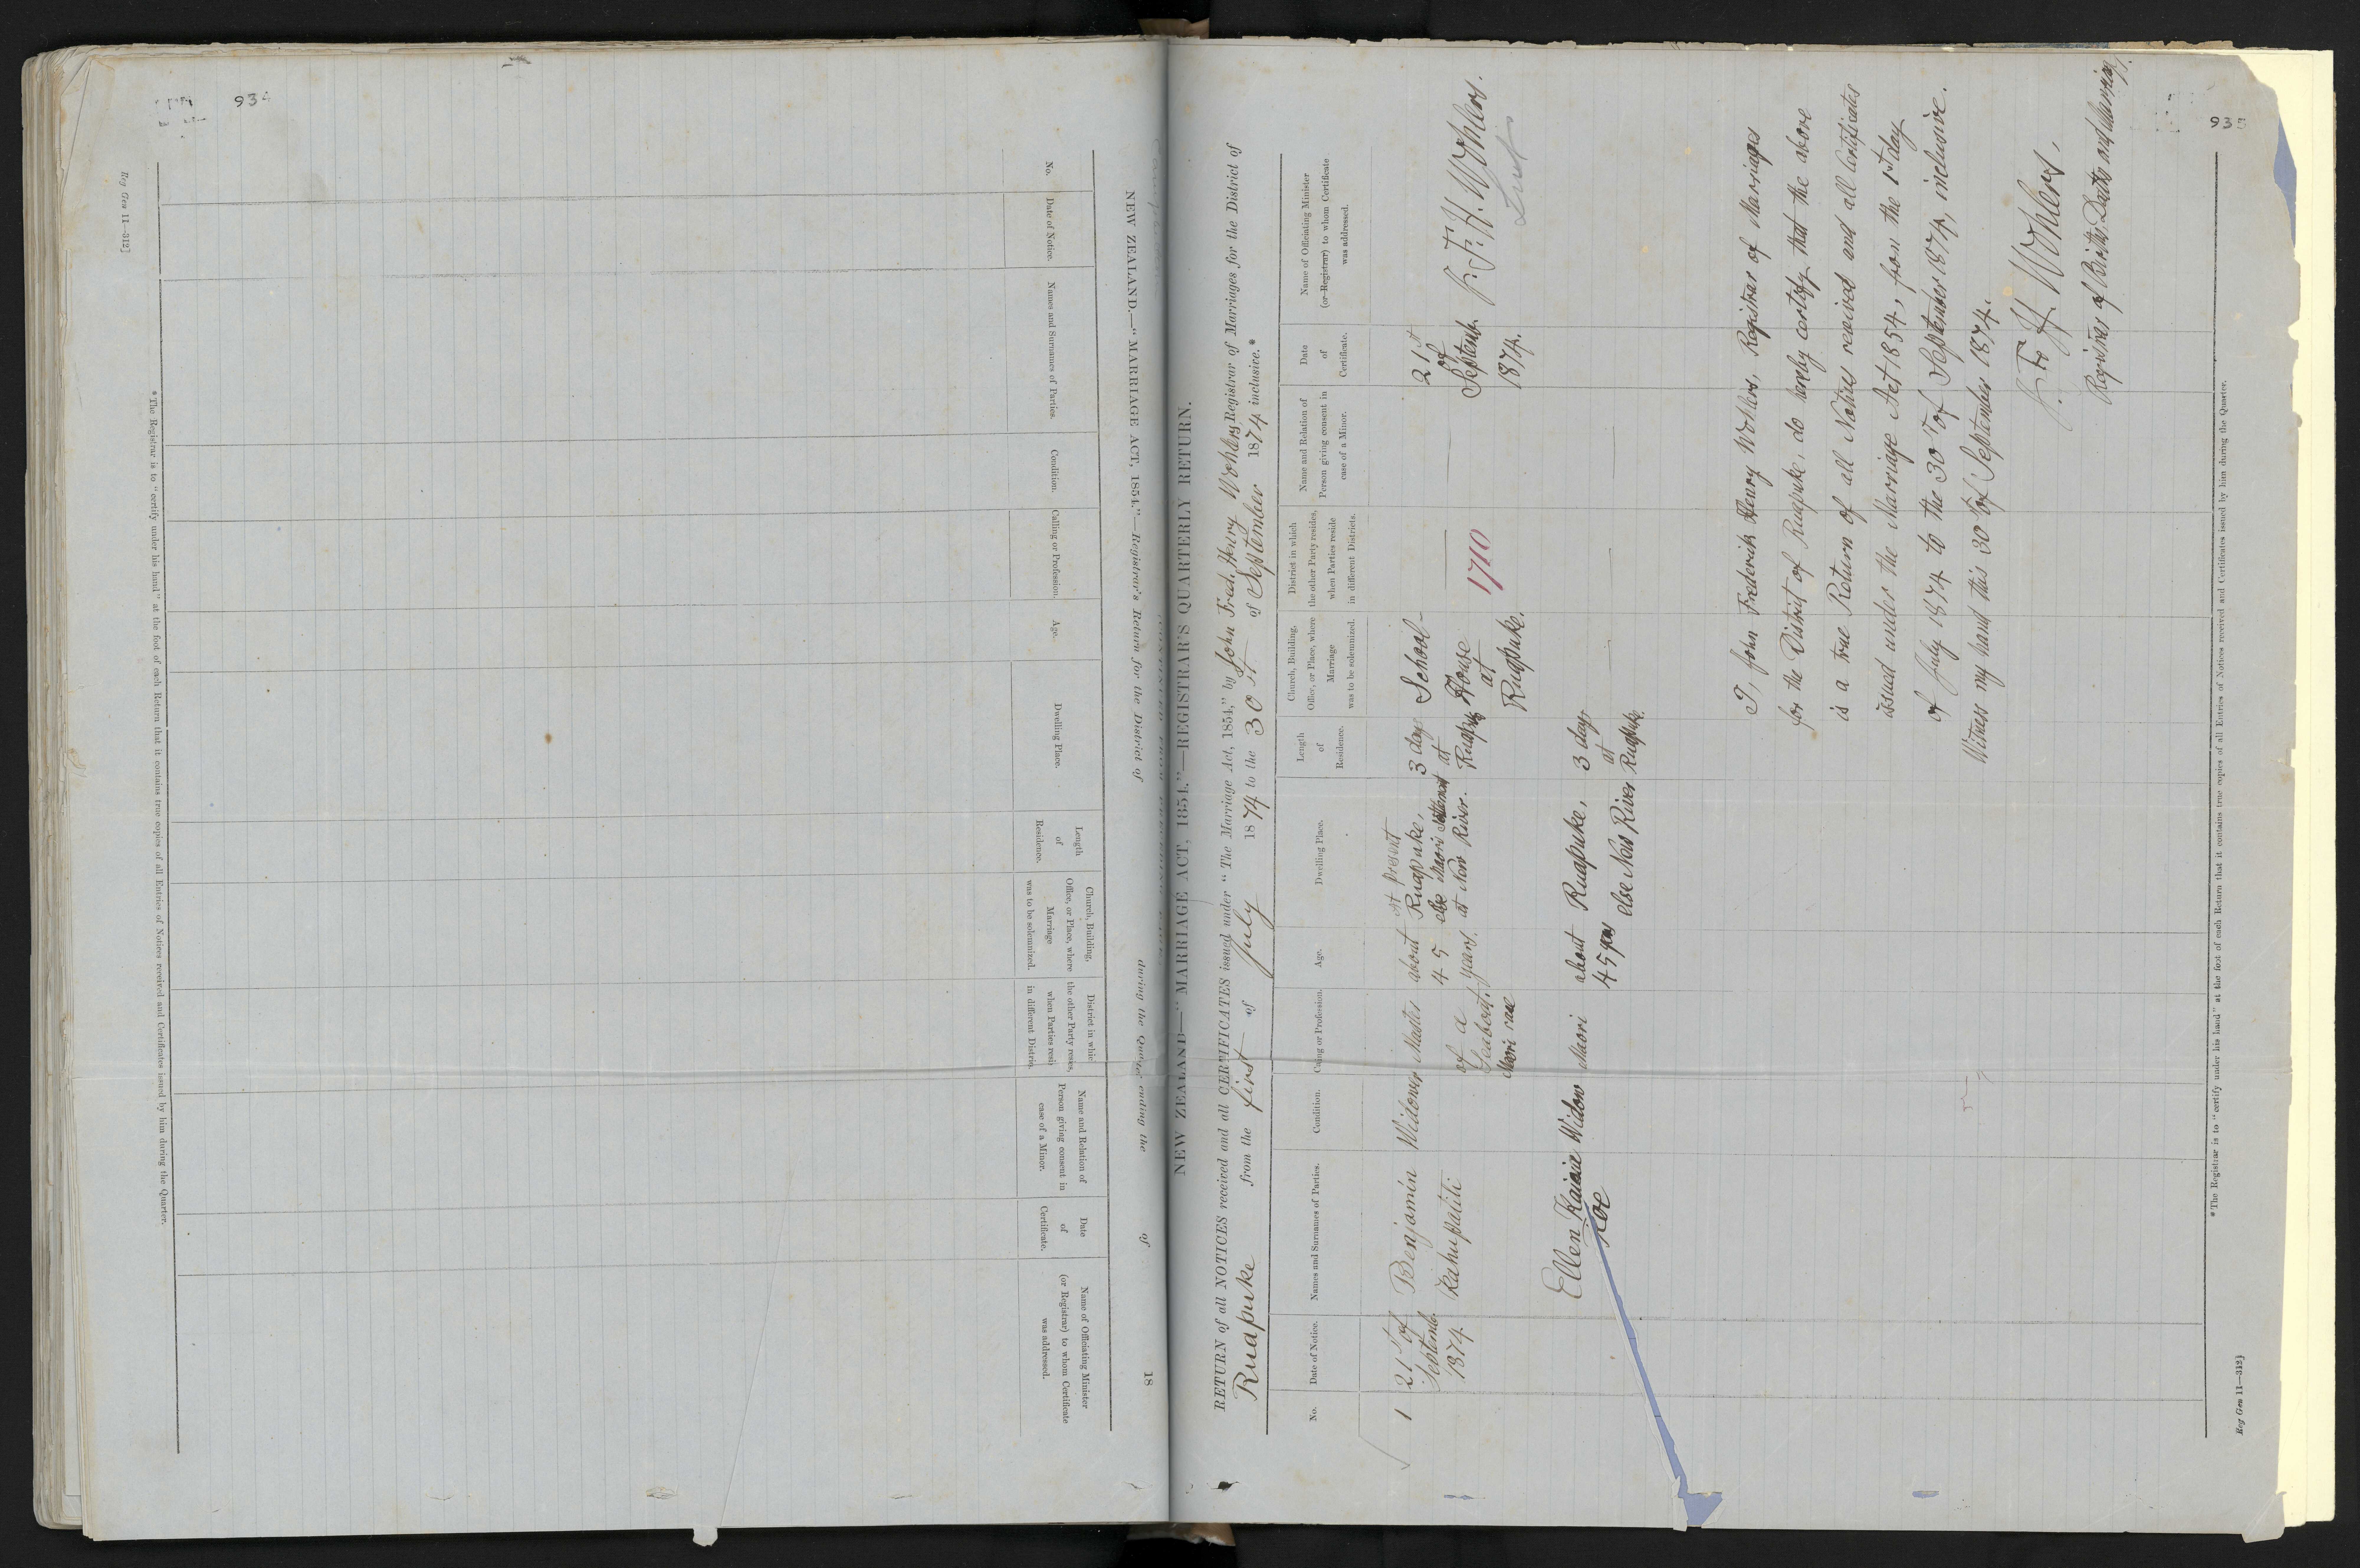 934
Reg Gen 11—312]
*The Registrar is to "certify under his hand" at the foot of each Return that it contains true copies of all Entries of Notices received and Certificates issued by him during the Quarter.
No.
Date of Notice.
Names and Surnames of Parties.
Condition.
Calling or Profession.
Age.
Dwelling Place.
Length
of
Residence.
Church, Building,
Office, or Place, where
Marriage
was to be solemnized.
District in whic
the other Party res
when Parties resi
in different Distri
Name and Relation of
Person giving consent in
case of a Minor.
Date
of
Certificate.
Name of Officiating Minister
(or Registrar) to whom Certificate
was addressed.
NEW ZEALAND.—"MARRIAGE ACT, 1854."—Registrar's Return for the District of during the Quarter ending the of 18
NEW ZEALAND—"MARRIAGE ACT, 1854."—REGISTRAR'S QUARTERLY RETURN.
RETURN of all NOTICES received and all CERTIFICATES issued under "The Marriage Act, 1854," by John Fred. Henry Wohlers Registrar of Marriages for the District of
Ruapuke from the first of July 1874 to the 30th of September 1874 inclusive.*
No.
Date of Notice.
Names and Surnames of Parties.
Condition.
Calling or Profession.
Age.
Dwelling Place.
Length
of
Residence.
Church, Building,
Office, or Place, where
Marriage
was to be solemnized.
District in which
the other Party resides,
when Parties reside
in different Districts.
Name and Relation of
Person giving consent in
case of a Minor.
Date
of
Certificate.
Name of Officiating Minister
(or Registrar) to whom Certificate
was addressed.
1
21st of
Septemb.
1874.
Benjamin
Kahupatiti
Widower
Master
of a
Seaboat.
Maori race
about
45
years.
at present
Ruapuke,
else Maori settlement
at New River.
3 days
at
Ruapuke
School-
House
at
Ruapuke.
1710
21st
of
Septemb.
1874.
J. F. H. Wohlers.
Luth
Ellen Kaiaia
Roe
Widow
Maori
about
45 years
Ruapuke,
else New River
3 days
at
Ruapuke.
I, John Frederick Henry Wohlers, Registrar of Marriages
for the District of Ruapuke, do hereby certify that the above
is a true Return of all Notices received and all Certificates
issued under the Marriage Act 1854, from the 1st day
of July 1874 to the 30th of September 1874, inclusive.
Witness my hand this 30th of September 1874.
J. F. H. Wohlers.
Registrar of Births, Deaths and Marriages.
*The Registrar is to "certify under his hand" at the foot of each Return that it contains true copies of all Entries of Notices received and Certificates issued by him during the Quarter.
Reg Gen 11—312]